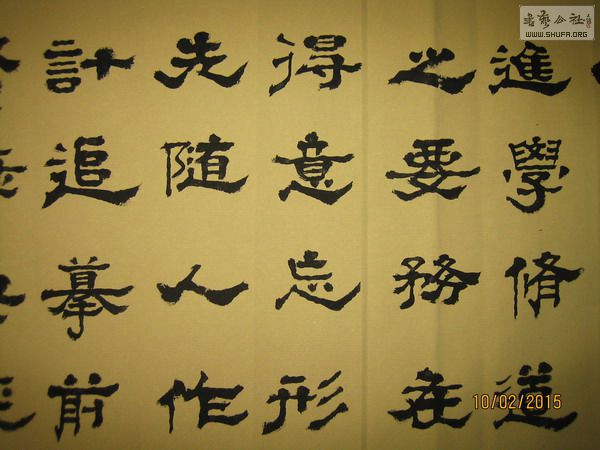 進學脩道
之要務在
得意忘形
先随人作
計追摹前
書藝公社
WWW.SHUFA.ORG
10/02/2015